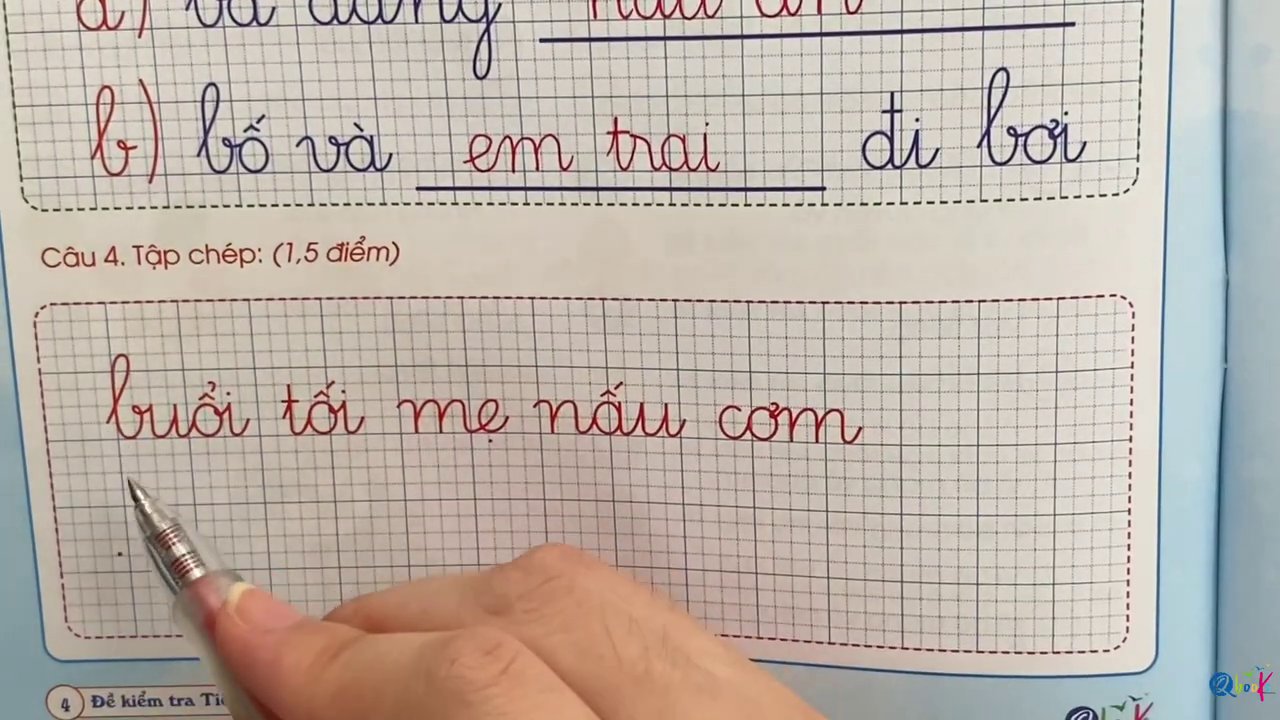 a) và đang nấu ăn
b) bố và em trai đi bơi
Câu 4. Tập chép: (1,5 điểm)
buổi tối mẹ nấu cơm
4 Đề kiểm tra
Qbook